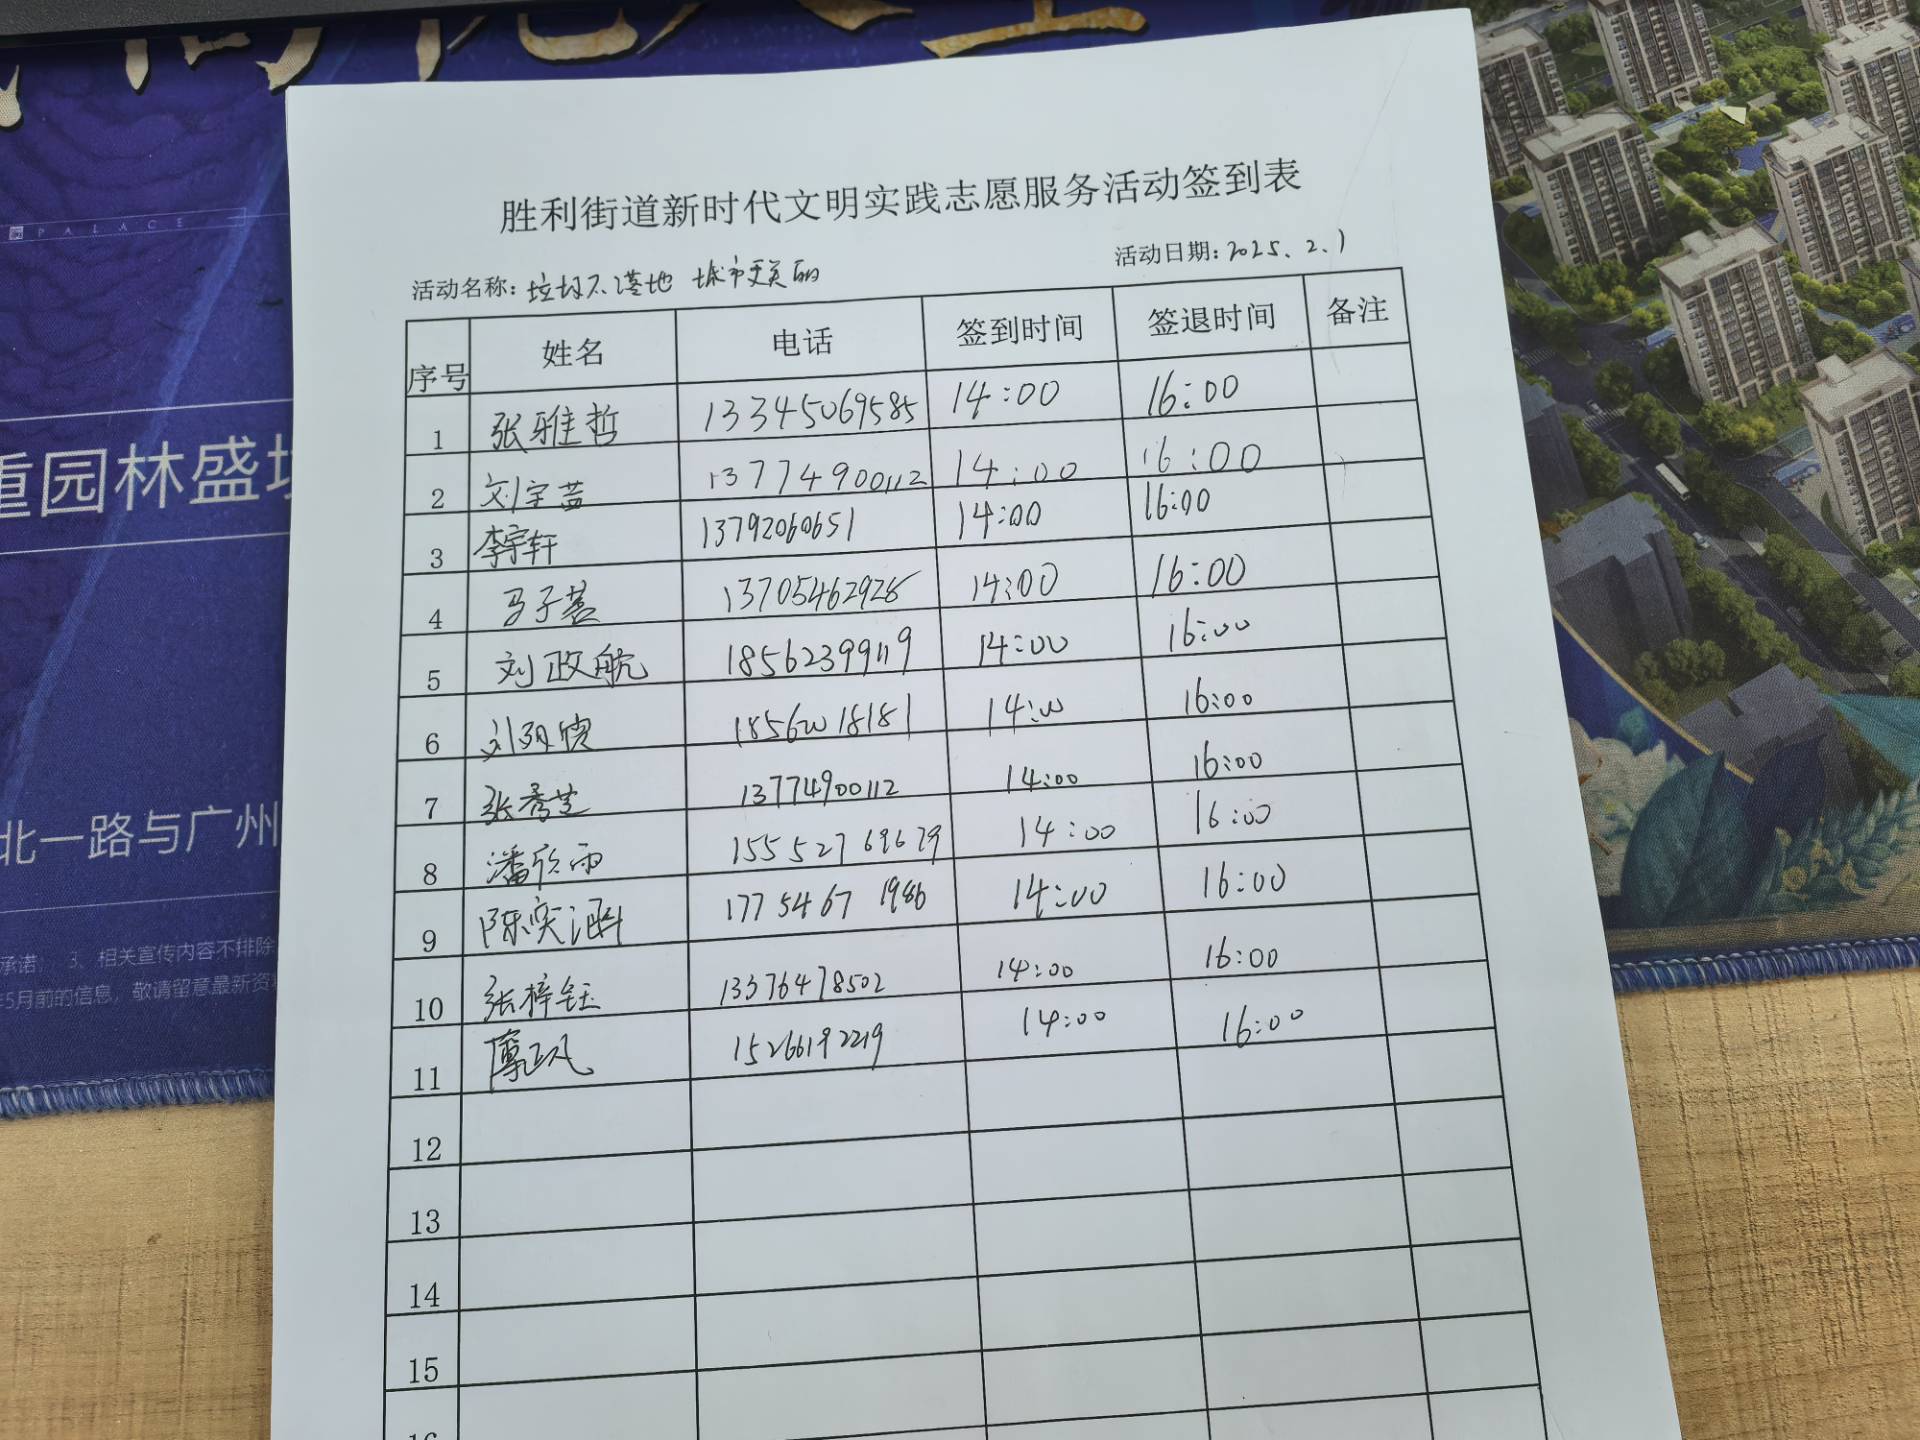 PALACE
重园林盛
北一路与广州
承诺； 3、相关宣传内容不排除
5月前的信息，敬请留意最新资
胜利街道新时代文明实践志愿服务活动签到表
活动名称：垃圾不落地 城市更美丽
活动日期：2025.2.1
序号 姓名 电话 签到时间 签退时间 备注
1 张雅哲 13345069585 14:00 16:00
2 刘宇芸 13774900112 14:00 16:00
3 李宗轩 13792060651 14:00 16:00
4 马子茗 13705462928 14:00 16:00
5 刘政航 18562399119 14:00 16:00
6 18560018181 14:00 16:00
7 张秀芝 13774900112 14:00 16:00
8 潘欣雨 15552769679 14:00 16:00
9 陈奕涵 17754671986 14:00 16:00
10 张梓钰 13376478502 14:00 16:00
11 15266192219 14:00 16:00
12
13
14
15